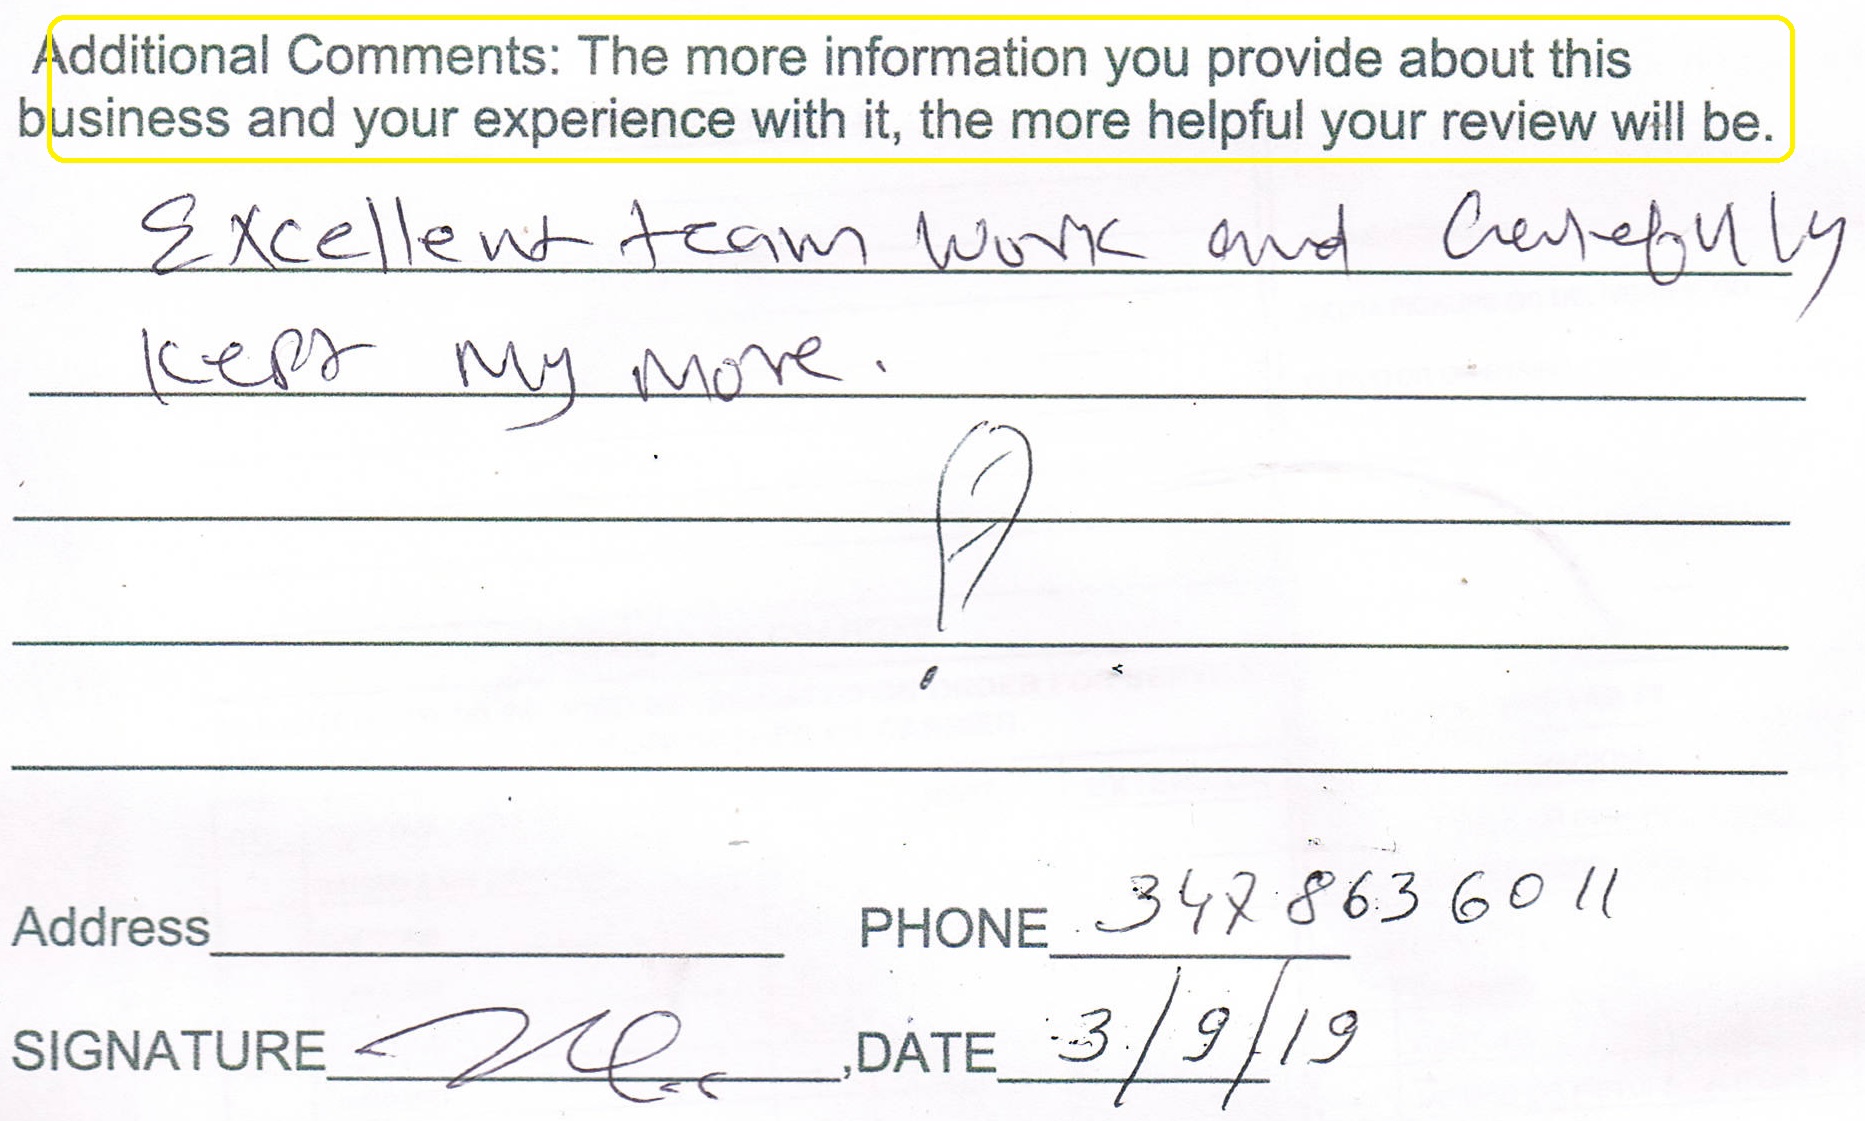 Additional Comments: The more information you provide about this
business and your experience with it, the more helpful your review will be.
Excellent team work and Carefully
Kept My Move.
A
Address
PHONE 347 863 6011
SIGNATURE
,DATE 3/9/19